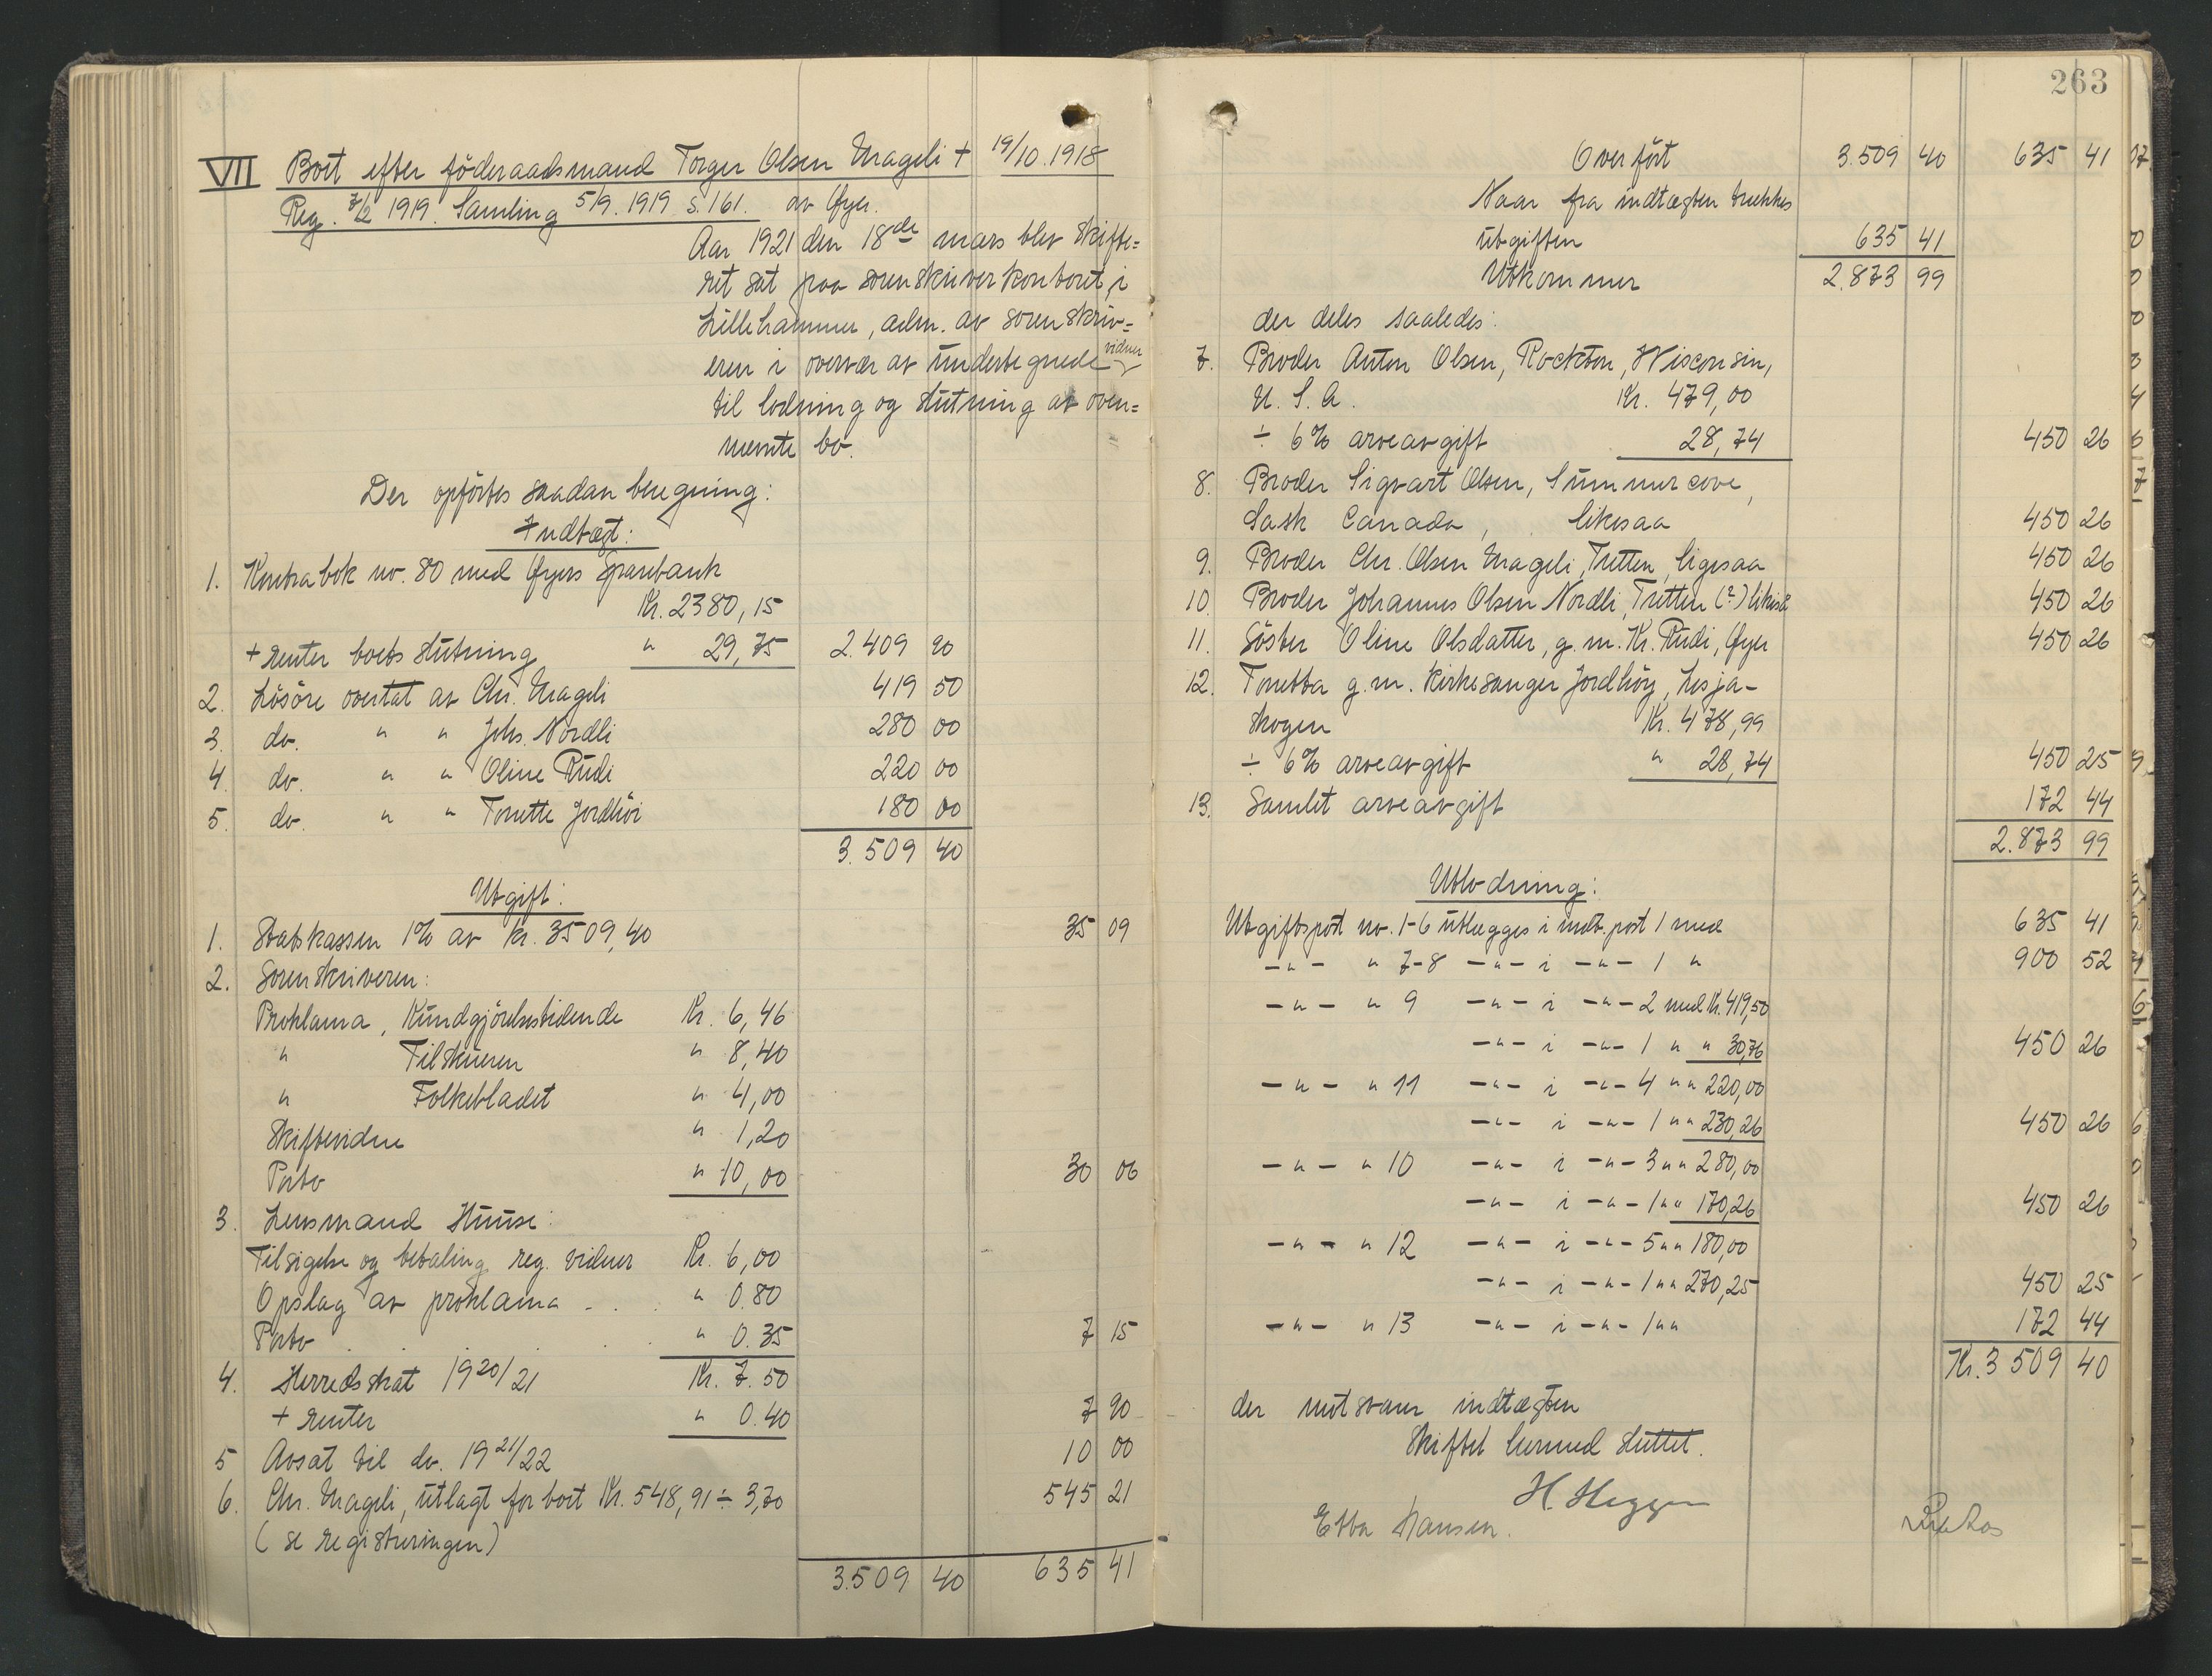 VII Boet efter föderaadsmand Torger Olsen Mageli + 19/10.1918
Reg. 7/2 1919. Samling 5/9. 1919 s. 161. av Øyer.
Aar 1921 den 18de mars blev skifte=
ret sat paa sorenskriverkontoret i
Lillehammer, adm. av sorenskriv=
eren i overvær av undertegnede vidner
til lodning og slutning av oven=
nævnte bo.
Der opförtes saadan beregning:
Indtægt:
1. Kontrabok no. 80 med Øyers sparebank
Kr. 2380,15
+ renter boets slutning " 29,75 2.409 90
2. Lösöre overtat av Chr. Mageli 419 50
3. do. " " Johs. Nordli 280 00
4. do. " " Oline Rudi 220 00
5. do. " " Tonette Jordhöi 180 00
3.509 40
Utgift:
1. Statskassen 1% av kr. 3509,40 35 09
2. Sorenskriveren:
Proklama, Kundgjörelsestidende Kr. 6,46
" Tilskueren " 8,40
" Folkebladet " 4,00
Skiftevidne " 1,20
Porto " 10,00 30 06
3. Lensmand Stuuse:
Tilsigelse og betaling reg. vidner Kr. 6,00
Opslag av proklama - . . " 0.80
Porto . . . " 0.35 7 15
4. Herredsskat 1920/21 Kr. 7.50
+ renter " 0.40 7 90
5 Avsat til do. 1921/22 10 00
6. Chr. Mageli, utlagt for boet Kr. 548,91 ÷ 3,70 545 21
(se registreringen)
3.509 40 635 41
263
Overfört 3.509 40 635 41
Naar fra indtægten trækkes
utgiften 635 41
Utkommer 2.873 99
der deles saaledes:
7. Broder Anton Olsen, Rockton, Wisconsin,
U. S. A. Kr. 479,00
÷ 6% arveavgift 28,74 450 26
8. Broder Sigvart Olsen, Summercove,
Sask Canada, likesaa 450 26
9. Broder Chr. Olsen Mageli, Tretten, ligesaa 450 26
10. Broder Johannes Olsen Nordli, Tretten (?) likesaa 450 26
11. Söster Oline Olsdatter, g. m. Kr. Rudi, Øyer 450 26
12. Tonetta g. m. Kirkesanger Jordhöy, Lesja-
skogen Kr. 478,99
÷ 6% arveavgift " 28,74 450 25
13. Samlet arveavgift 172 44
2.873 99
Utlodning:
Utgiftspost no. 1-6 utlægges i indt. post 1 med 635 41
-"- " 7-8 -"- i -"- 1 " 900 52
-"- " 9 -"- i -"- 2 med Kr. 419,50
-"- i -"- 1 " " 30,76 450 26
-"- " 11 -"- i -"- 4 " " 220,00
-"- i -"- 1 " " 230,26 450 26
-"- " 10 -"- i -"- 3 " " 280,00
-"- i -"- 1 " " 170,26 450 26
-"- " 12 -"- i -"- 5 " " 180,00
-"- i -"- 1 " " 270,25 450 25
-"- " 13 -"- i -"- 1 " " 172 44
Kr. 3 509 40
der motsvarer indtægten
Skiftet hermed sluttet.
H. Heggen
Ebba Hansen.